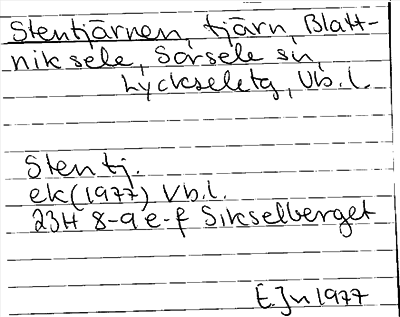 Stentjärnen, tjärn, Blatt-
niksele, Sorsele sn,
Lyckseletg, Vb.l.
Stentj.
ek (1977) Vb.l.
23H 8-9 e-f Sikselberget
EJn 1977